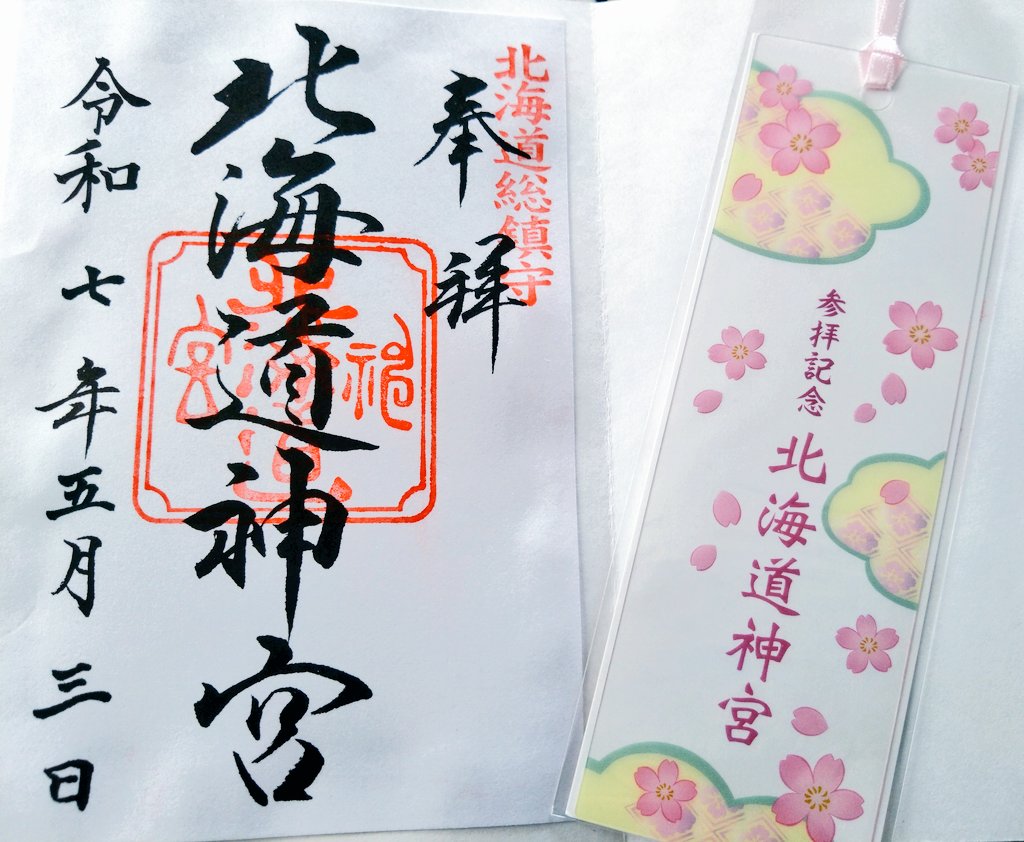 北海道総鎮守
奉拝
北海道神宮
令和七年五月三日
参拝記念
北海道神宮